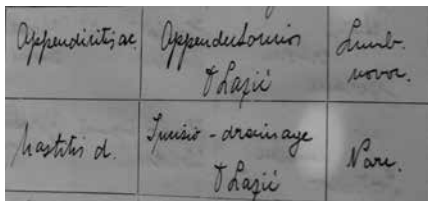 Appendicitis ac.
Appendectomios
Lazić
Lumb.
novoc.
Mastitis d.
Incisio - drainage
Lazić
Narc.